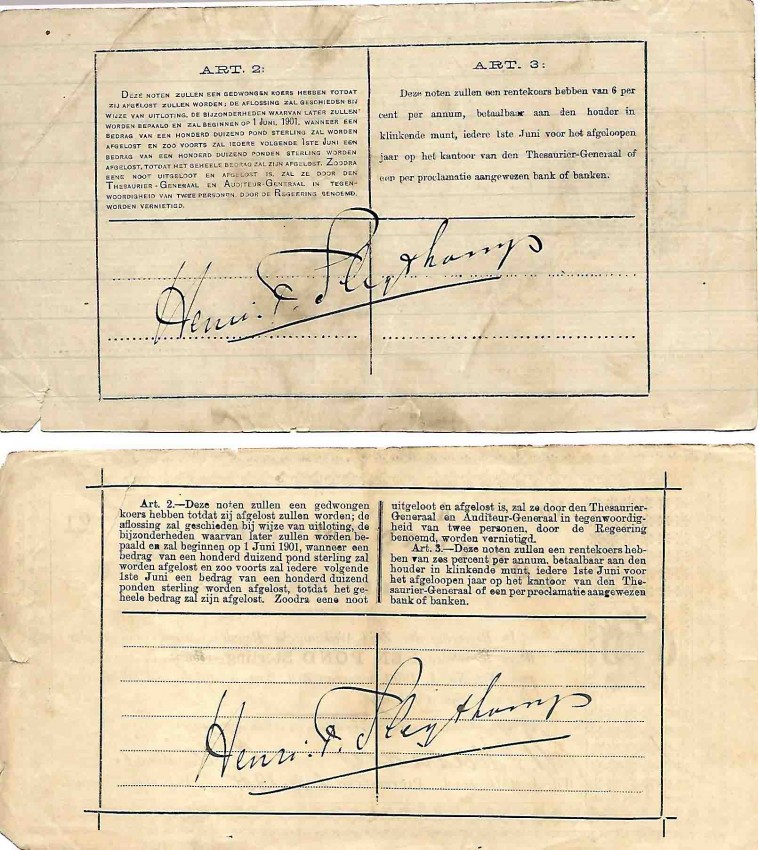 ART. 2:
DEZE NOTEN ZULLEN EEN GEDWONGEN KOERS HEBBEN TOTDAT
ZIJ AFGELOST ZULLEN WORDEN; DE AFLOSSING ZAL GESCHIEDEN BIJ
WIJZE VAN UITLOTING, DE BIJZONDERHEDEN WAARVAN LATER ZULLEN
WORDEN BEPAALD EN ZAL BEGINNEN OP 1 JUNI, 1901, WANNEER EEN
BEDRAG VAN EEN HONDERD DUIZEND POND STERLING ZAL WORDEN
AFGELOST EN ZOO VOORTS ZAL IEDERE VOLGENDE 1STE JUNI EEN
BEDRAG VAN EEN HONDERD DUIZEND PONDEN STERLING WORDEN
AFGELOST, TOTDAT HET GEHEELE BEDRAG ZAL ZIJN AFGELOST. ZOODRA
EENE NOOT UITGELOOT EN AFGELOST IS, ZAL ZE DOOR DEN
THESAURIER-GENERAAL EN AUDITEUR-GENERAAL IN TEGEN-
WOORDIGHEID VAN TWEE PERSONEN, DOOR DE REGEERING BENOEMD,
WORDEN VERNIETIGD.
ART. 3:
Deze noten zullen een rentekoers hebben van 6 per
cent per annum, betaalbaar aan den houder in
klinkende munt, iedere 1ste Juni voor het afgeloopen
jaar op het kantoor van den Thesaurier-Generaal of
een per proclamatie aangewezen bank of banken.
Henri. F. Sleythamp
Art. 2.—Deze noten zullen een gedwongen
koers hebben totdat zij afgelost zullen worden; de
aflossing zal geschieden bij wijze van uitloting, de
bijzonderheden waarvan later zullen worden be-
paald en zal beginnen op 1 Juni 1901, wanneer een
bedrag van een honderd duizend pond sterling zal
worden afgelost en zoo voorts zal iedere volgende
1ste Juni een bedrag van een honderd duizend
ponden sterling worden afgelost, totdat het ge-
heele bedrag zal zijn afgelost. Zoodra eene noot
uitgeloot en afgelost is, zal ze door den Thesaurier-
Generaal en Auditeur-Generaal in tegenwoordig-
heid van twee personen, door de Regeering
benoemd, worden vernietigd.
Art. 3.—Deze noten zullen een rentekoers heb-
ben van zes percent per annum, betaalbaar aan den
houder in klinkende munt, iedere 1ste Juni voor
het afgeloopen jaar op het kantoor van den The-
saurier-Generaal of een per proclamatie aangewezen
bank of banken.
Henri. F. Sleythamp